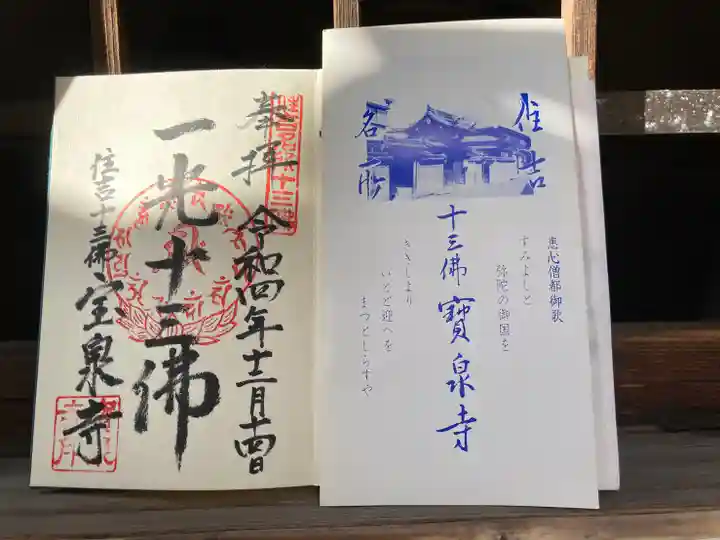 奉拝
令和四年十二月十四日
一光十三佛
住吉十三佛
宝泉寺
住吉
名所
十三佛寶泉寺
恵心僧都御歌
すみよしと
弥陀の御国を
きゝしより
いとど迎へを
まつとしらすや